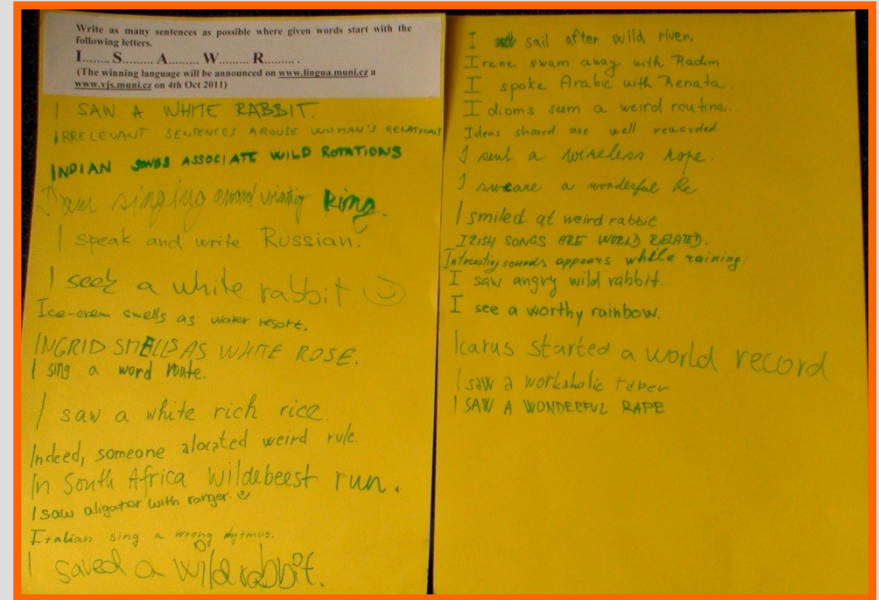 Write as many sentences as possible where given words start with the
following letters.
I........ S........ A........ W........ R......... .
(The winning language will be announced on www.lingua.muni.cz a
www.vjs.muni.cz on 4th Oct 2011)
I SAW A WHITE RABBIT.
IRRELEVANT SENTENCES AROUSE WOMAN'S RELATIONS
INDIAN SONGS ASSOCIATE WILD ROTATIONS
I'am singing award winning
I speak and write Russian.
I seek a white rabbit ☺
Ice-cream smells as water resort.
INGRID SMELLS AS WHITE ROSE.
I sing a word route.
I saw a white rich rice.
Indeed, someone alocated weird rule.
In South Africa Wildebeest run.
I saw aligator with ranger. ☺
Italian sing a wrong rytmus.
I saved a wild rabbit.
I sail after wild river.
Irene swam away with Radim
I spoke Arabic with Renata.
Idioms seem a weird routine.
Ideas shared are well rewarded
I sent a wireless rope.
I sweare a wonderful
I smiled at weird rabbit.
IRISH SONGS ARE WORLD RELATED.
Interesting sounds appears while raining.
I saw angry wild rabbit.
I see a worthy rainbow.
Icarus started a world record
I saw a workoholic
I SAW A WONDERFUL RAPE